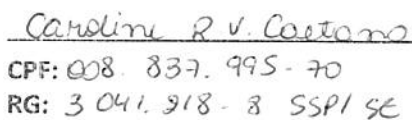 Caroline R V. Caetano
CPF: 008. 837. 995-70
RG: 3 041. 918 - 8 SSP/ SE